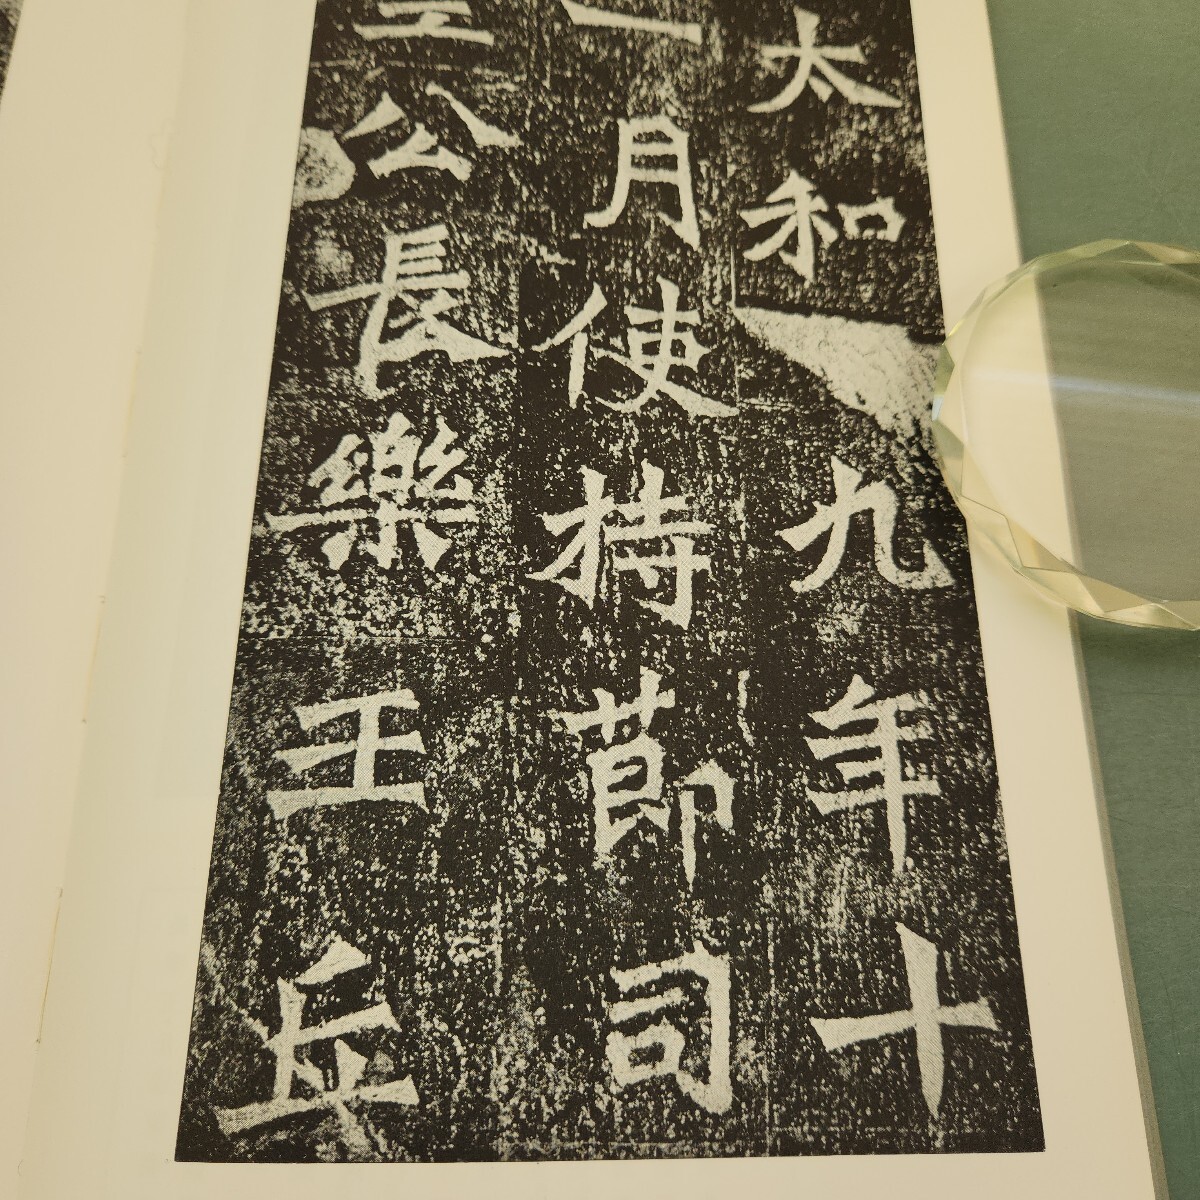 太和九年十
一月使持節司
公長樂王丘